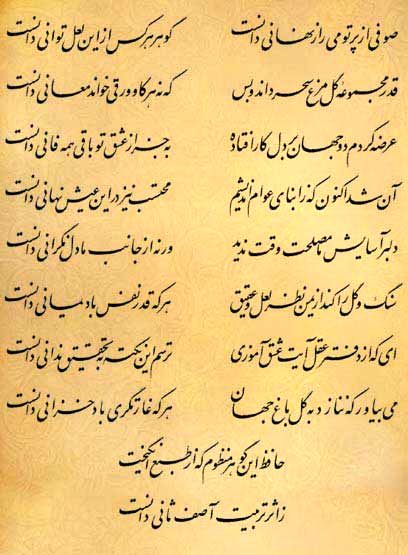 صوفی از پرتو می راز نهانی دانست گوهر هر کس از این لعل توانی دانست
قدر مجموعه گل مرغ سحر داند و بس که نه هر کاو ورقی خواند معانی دانست
عرضه کردم دو جهان بر دل کار افتاده به جز از عشق تو باقی همه فانی دانست
آن شد اکنون که ز ابنای عوام اندیشم محتسب نیز در این عیش نهانی دانست
دلبر آسایش ما مصلحت وقت ندید ور نه از جانب ما دل نگرانی دانست
سنگ و گل را کند از یمن نظر لعل و عقیق هر که قدر نفس باد یمانی دانست
ای که از دفتر عقل آیت عشق آموزی ترسم این نکته به تحقیق ندانی دانست
می بیاور که ننازد به گل باغ جهان هر که غارتگری باد خزانی دانست
حافظ این گوهر منظوم که از طبع انگیخت
ز اثر تربیت آصف ثانی دانست